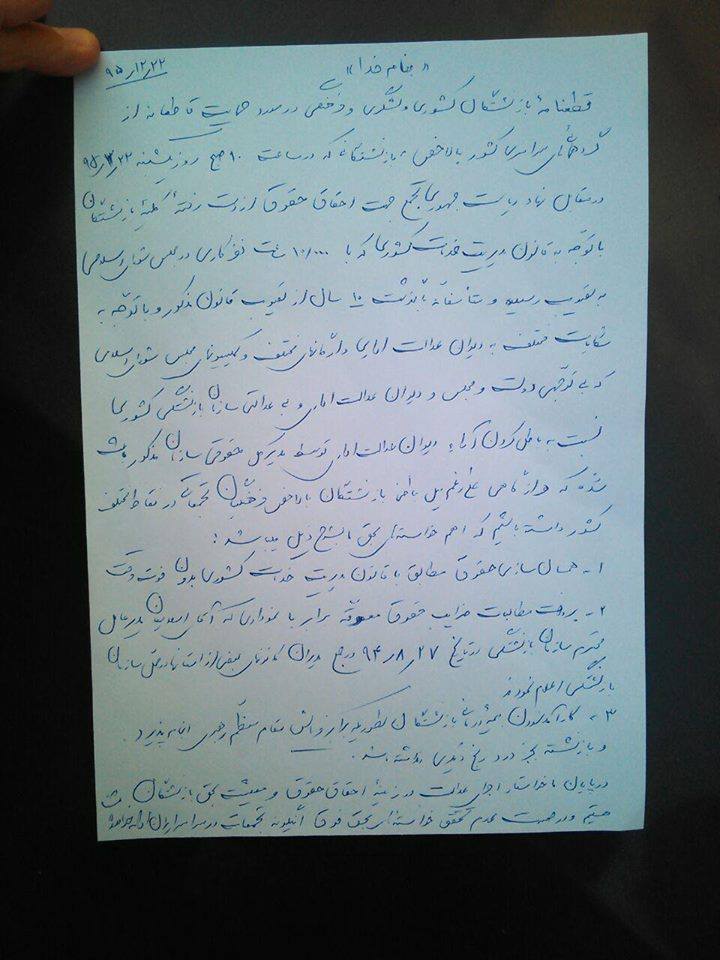 «بنام خدا» ۹۵/۱۲/۲۲
قطعنامهٔ بازنشستگان کشوری و لشگری و فرهنگی در مورد حمایت قاطعانه از
گردهمائی سراسری کشور بالاخص بازنشستگان که در ساعت ۱۰ صبح روز یکشنبه ۹۵/۱۲/۲۲
در مقابل نهاد ریاست جمهوری تجمع جهت احقاق حقوق از دست رفتهٔ کلیهٔ بازنشستگان
با توجه به قانون مدیریت خدمات کشوری که با ۱۰/۰۰۰ ساعت نفر کاری در مجلس شورای اسلامی
به تصویب رسیده و متأسفانه با گذشت ۱۰ سال از تصویب قانون مذکور و با توجه به
شکایات مختلف به دیوان عدالت اداری و ارگانهای مختلف و کمیسیونهای مجلس شورای اسلامی
که بی توجهی دولت و مجلس و دیوان عدالت اداری و بی عدالتی سازمان بازنشستگی کشوری
نسبت به باطل کردن آراء دیوان عدالت اداری توسط مدیر کل حقوقی سازمان مذکور باعث
شده که هر از گاهی علی رغم میل باطنی بازنشستگان بالاخص فرهنگیان تجمعات در نقاط مختلف
کشور داشته باشیم که اهم خواسته‌های بحق بشرح ذیل میباشد :
۱- همسان سازی حقوق مطابق با قانون مدیریت خدمات کشوری بدون فوت وقت
۲- پرداخت مطالبات ضرایب حقوق معوقه برابر با نموداری که آقای اسلامیان مدیر عامل
محترم سازمان بازنشستگی در تاریخ ۹۴/۸/۲۷ در جمع مدیران کانونهای بعضی از استانها در محل سازمان
بازنشستگی اعلام نمودند
۳- کارآمد نمودن بیمهٔ درمان بازنشستگان بطوریکه برابر فرمایش مقام معظم رهبری
و بازنشسته بجز درد رنج دیگری نداشته باشد.
در پایان ما خواستار اجرای عدالت در زمینهٔ احقاق حقوق و معیشت بحق بازنشستگان
هستیم و در صورت عدم تحقق خواسته‌های بحق فوق اینگونه تجمعات در سراسر ایران